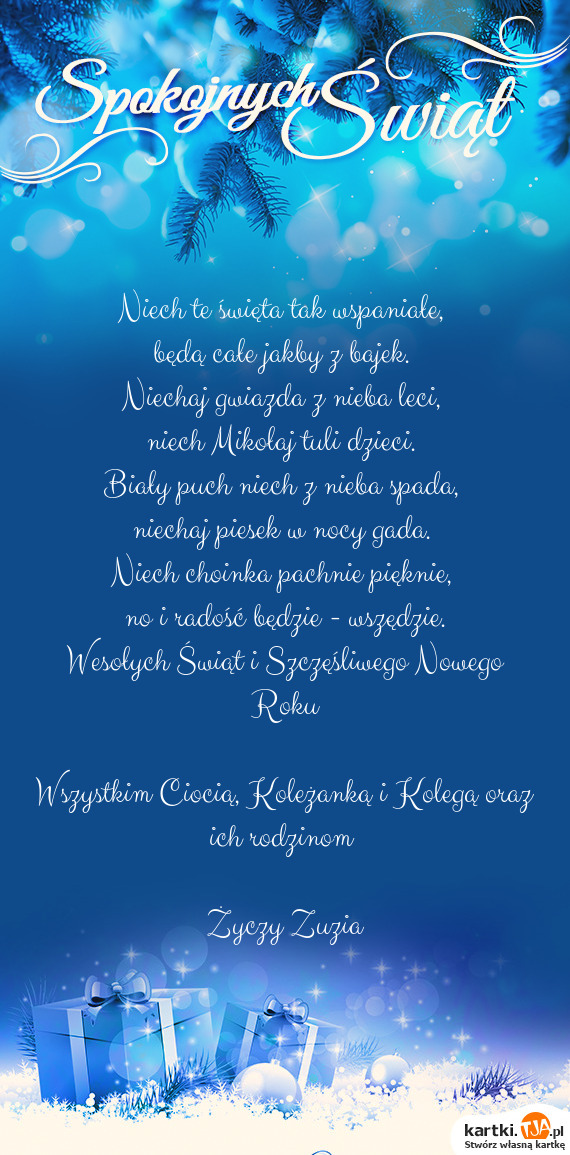 Spokojnych Świąt
Niech te święta tak wspaniałe,
będą całe jakby z bajek.
Niechaj gwiazda z nieba leci,
niech Mikołaj tuli dzieci.
Biały puch niech z nieba spada,
niechaj piesek w nocy gada.
Niech choinka pachnie pięknie,
no i radość będzie - wszędzie.
Wesołych Świąt i Szczęśliwego Nowego
Roku
Wszystkim Ciocią, Koleżanką i Kolegą oraz
ich rodzinom
Życzy Zuzia
kartki.TJA.pl
Stwórz własną kartkę